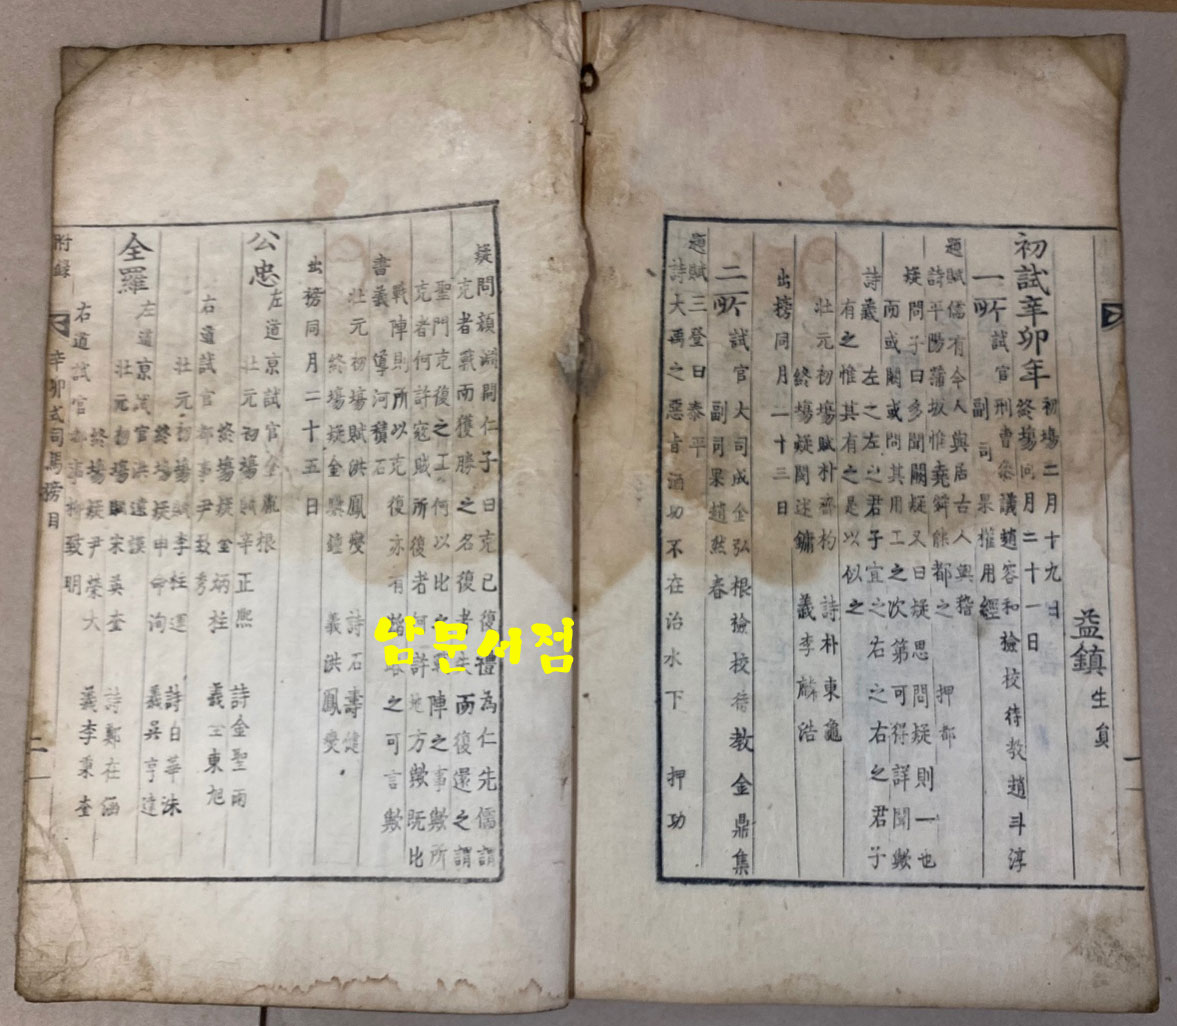 益鎮 生員
初試辛卯年 初場二月十九日
終場同月二十一日
一所 試官刑曹參議趙容和 檢校待教趙斗淳
副司果權用經
題賦儒有今人與居古人與稽
詩平陽蒲坂惟堯舜能都之 押都
疑問子曰多聞闕疑又曰疑思問疑則一也
而或闕或問其用工之次第可得詳聞歟
詩義 左之左之君子宜之右之右之君子
有之惟其有之是以似之
壯元初場賦朴齊杓 詩朴東龜
終場疑閔述鏞 義李麟浩
出榜同月二十三日
二所 試官大司成金弘根 檢校待教金鼎集
副司果趙然春
題賦三登曰泰平
詩大禹之惡旨酒功不在治水下 押功
疑問顏淵問仁子曰克己復禮為仁先儒謂
克者戰而獲勝之名復者失而復還之謂
聖門克復之工何以比之戰陣之事歟所
克者何許寇賊所復者何許地方歟既比
戰陣則所以克復亦有 之可言歟
書義 導河積石
壯元初場賦洪鳳燮 詩石壽健
終場疑金 鍾 義洪鳳燮
出榜同月二十五日
公忠 左道京試官金 根
壯元初場賦辛正熙 詩金聖雨
終場疑金炳桂 義 東旭
右道試官都事尹致秀
壯元初場賦李柱運 詩白華洙
終場疑申命洵 義吳亨達
全羅 左道京試官洪遠謨
壯元初場賦宋英奎 詩鄭在
終場疑尹榮大 義李秉奎
右道試官都事 致明
附錄 辛卯式司馬榜目 二
남문서점